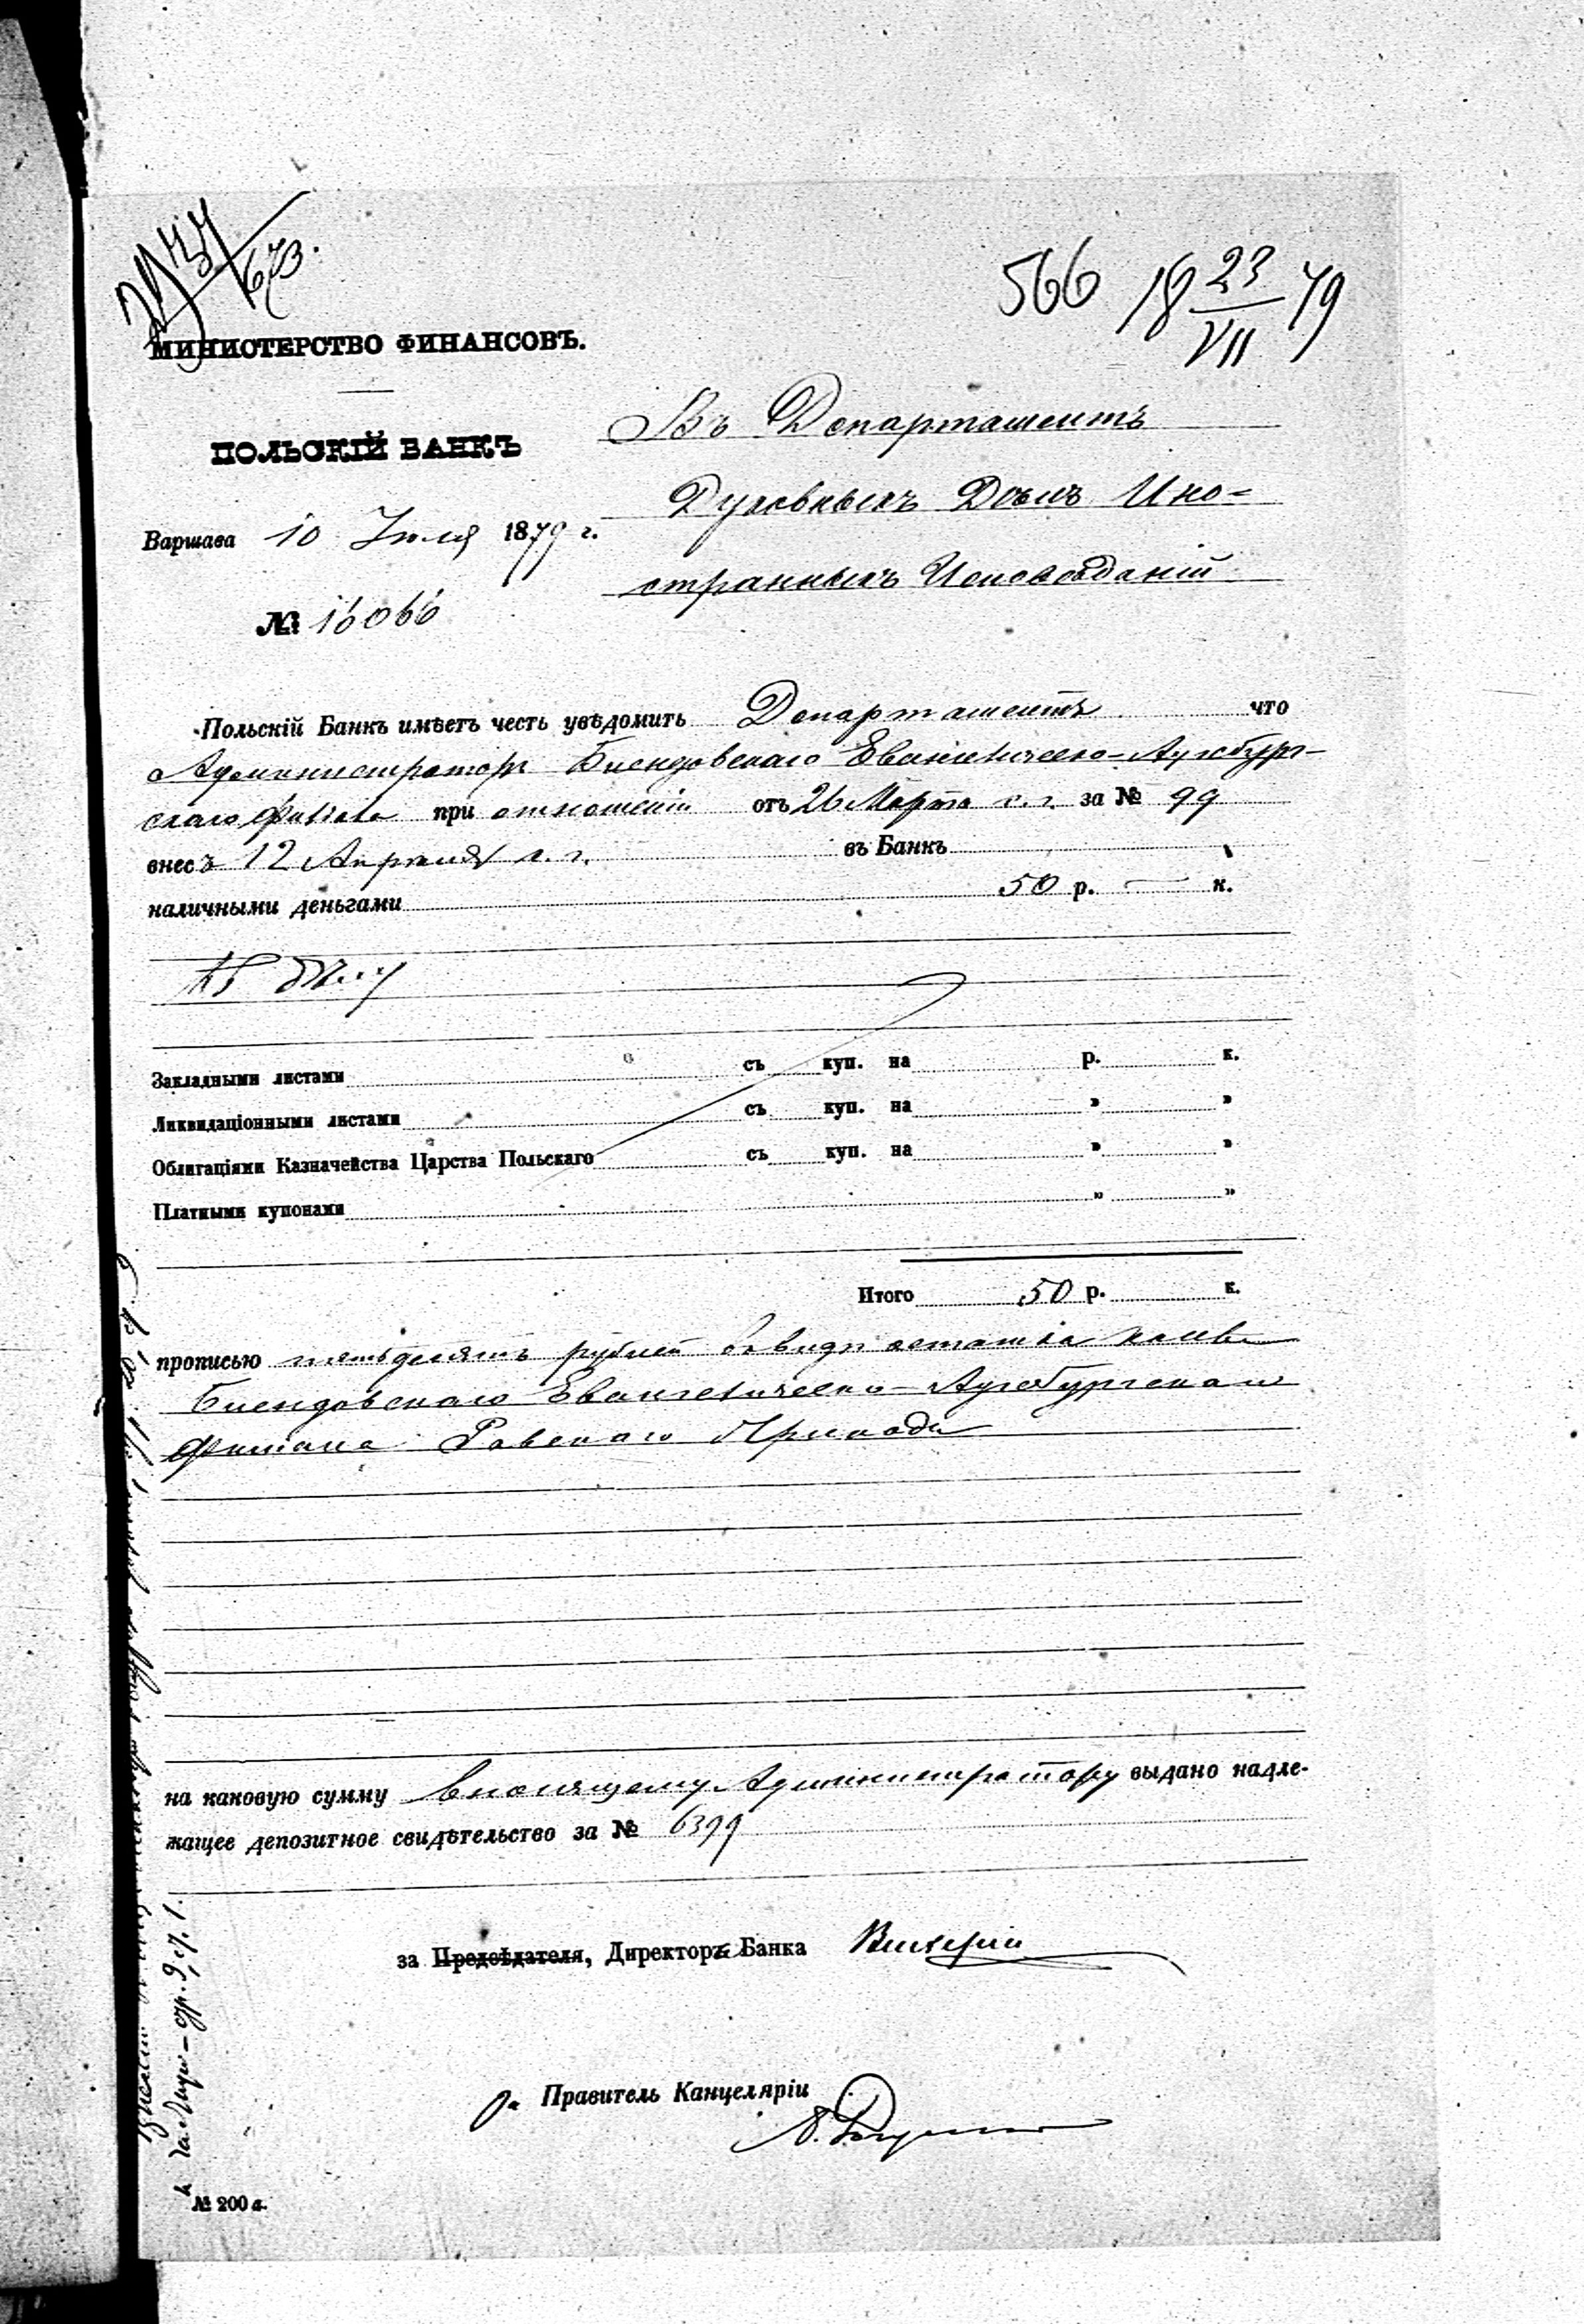 673.
566 18 23/VII 79
МИНИСТЕРСТВО ФИНАНСОВЪ.
ПОЛЬСКІЙ БАНКЪ
Варшава 10 Іюля 1879 г.
№ 16066
Въ Департаментъ
Духовныхъ Дѣлъ Ино-
странныхъ Исповѣданій
Польскій Банкъ имѣетъ честь увѣдомить Департаментъ что
Администраторъ Біендовскаго Евангелическо-Аугсбург-
скаго Филіала при отношеніи отъ 26 Марта с. г. за № 99
внесъ 12 Апрѣля с. г. въ Банкъ
наличными деньгами 50 р. — к.
Закладными листами съ куп. на р. к.
Ликвидаціонными листами съ куп. на " "
Облигаціями Казначейства Царства Польскаго съ куп. на " "
Платными купонами " "
Итого 50 р. к.
прописью пятьдесятъ рублей въ видѣ остатка
Біендовскаго Евангелическо-Аугсбургскаго
Филіала Равскаго Прихода
на каковую сумму вносящему Администратору выдано надле-
жащее депозитное свидѣтельство за № 6399
за Предсѣдателя, Директоръ Банка
За Правитель Канцеляріи
№ 200 а.